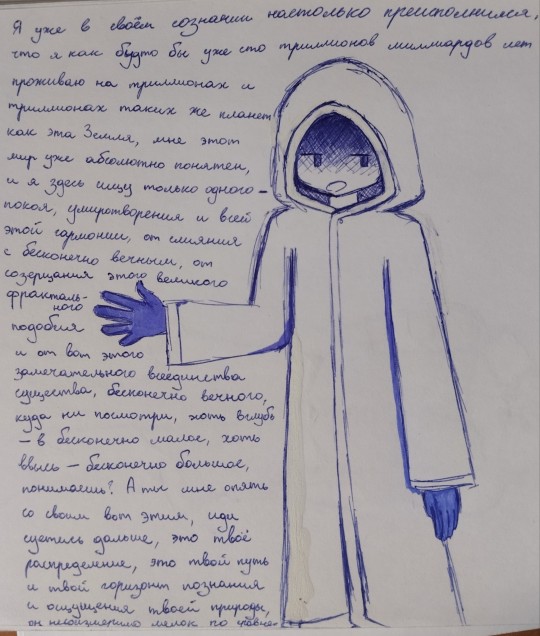 Я уже в своём сознании настолько преисполнился,
что я как будто бы уже сто триллионов миллиардов лет
проживаю на триллионах и
триллионах таких же планет
как эта Земля, мне этот
мир уже абсолютно понятен,
и я здесь ищу только одного -
покоя, умиротворения и всей
этой гармонии, от слияния
с бесконечно вечным, от
созерцания этого великого
фракталь-
ного
подобия
и от вот этого
замечательного всеединства
существа, бесконечно вечного,
куда ни посмотри, хоть вглубь
- в бесконечно малое, хоть
ввысь - бесконечно большое,
понимаешь? А ты мне опять
со своим вот этим, иди
суетись дальше, это твоё
распределение, это твой путь
и твой горизонт познания
и ощущения твоей природы,
он несоизмеримо мелок по